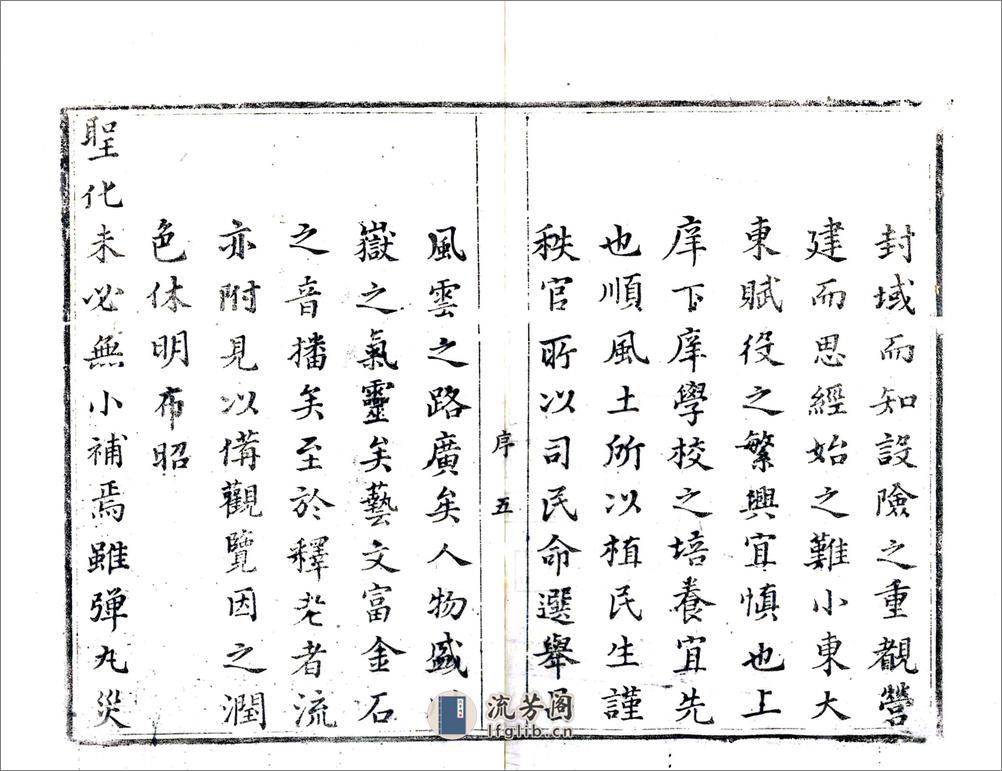 封域而知設險之重覩營
建而思經始之難小東大
東賦役之繁興宜慎也上
庠下庠學校之培養宜先
也順風土所以植民生謹
秩官所以司民命選舉
序 五
風雲之路廣矣人物盛
嶽之氣靈矣藝文富金石
之音播矣至於釋老者流
亦附見以備觀覽因之潤
色休明布昭
聖化未必無小補焉雖弹丸災
流芳阁
lfglib.cn